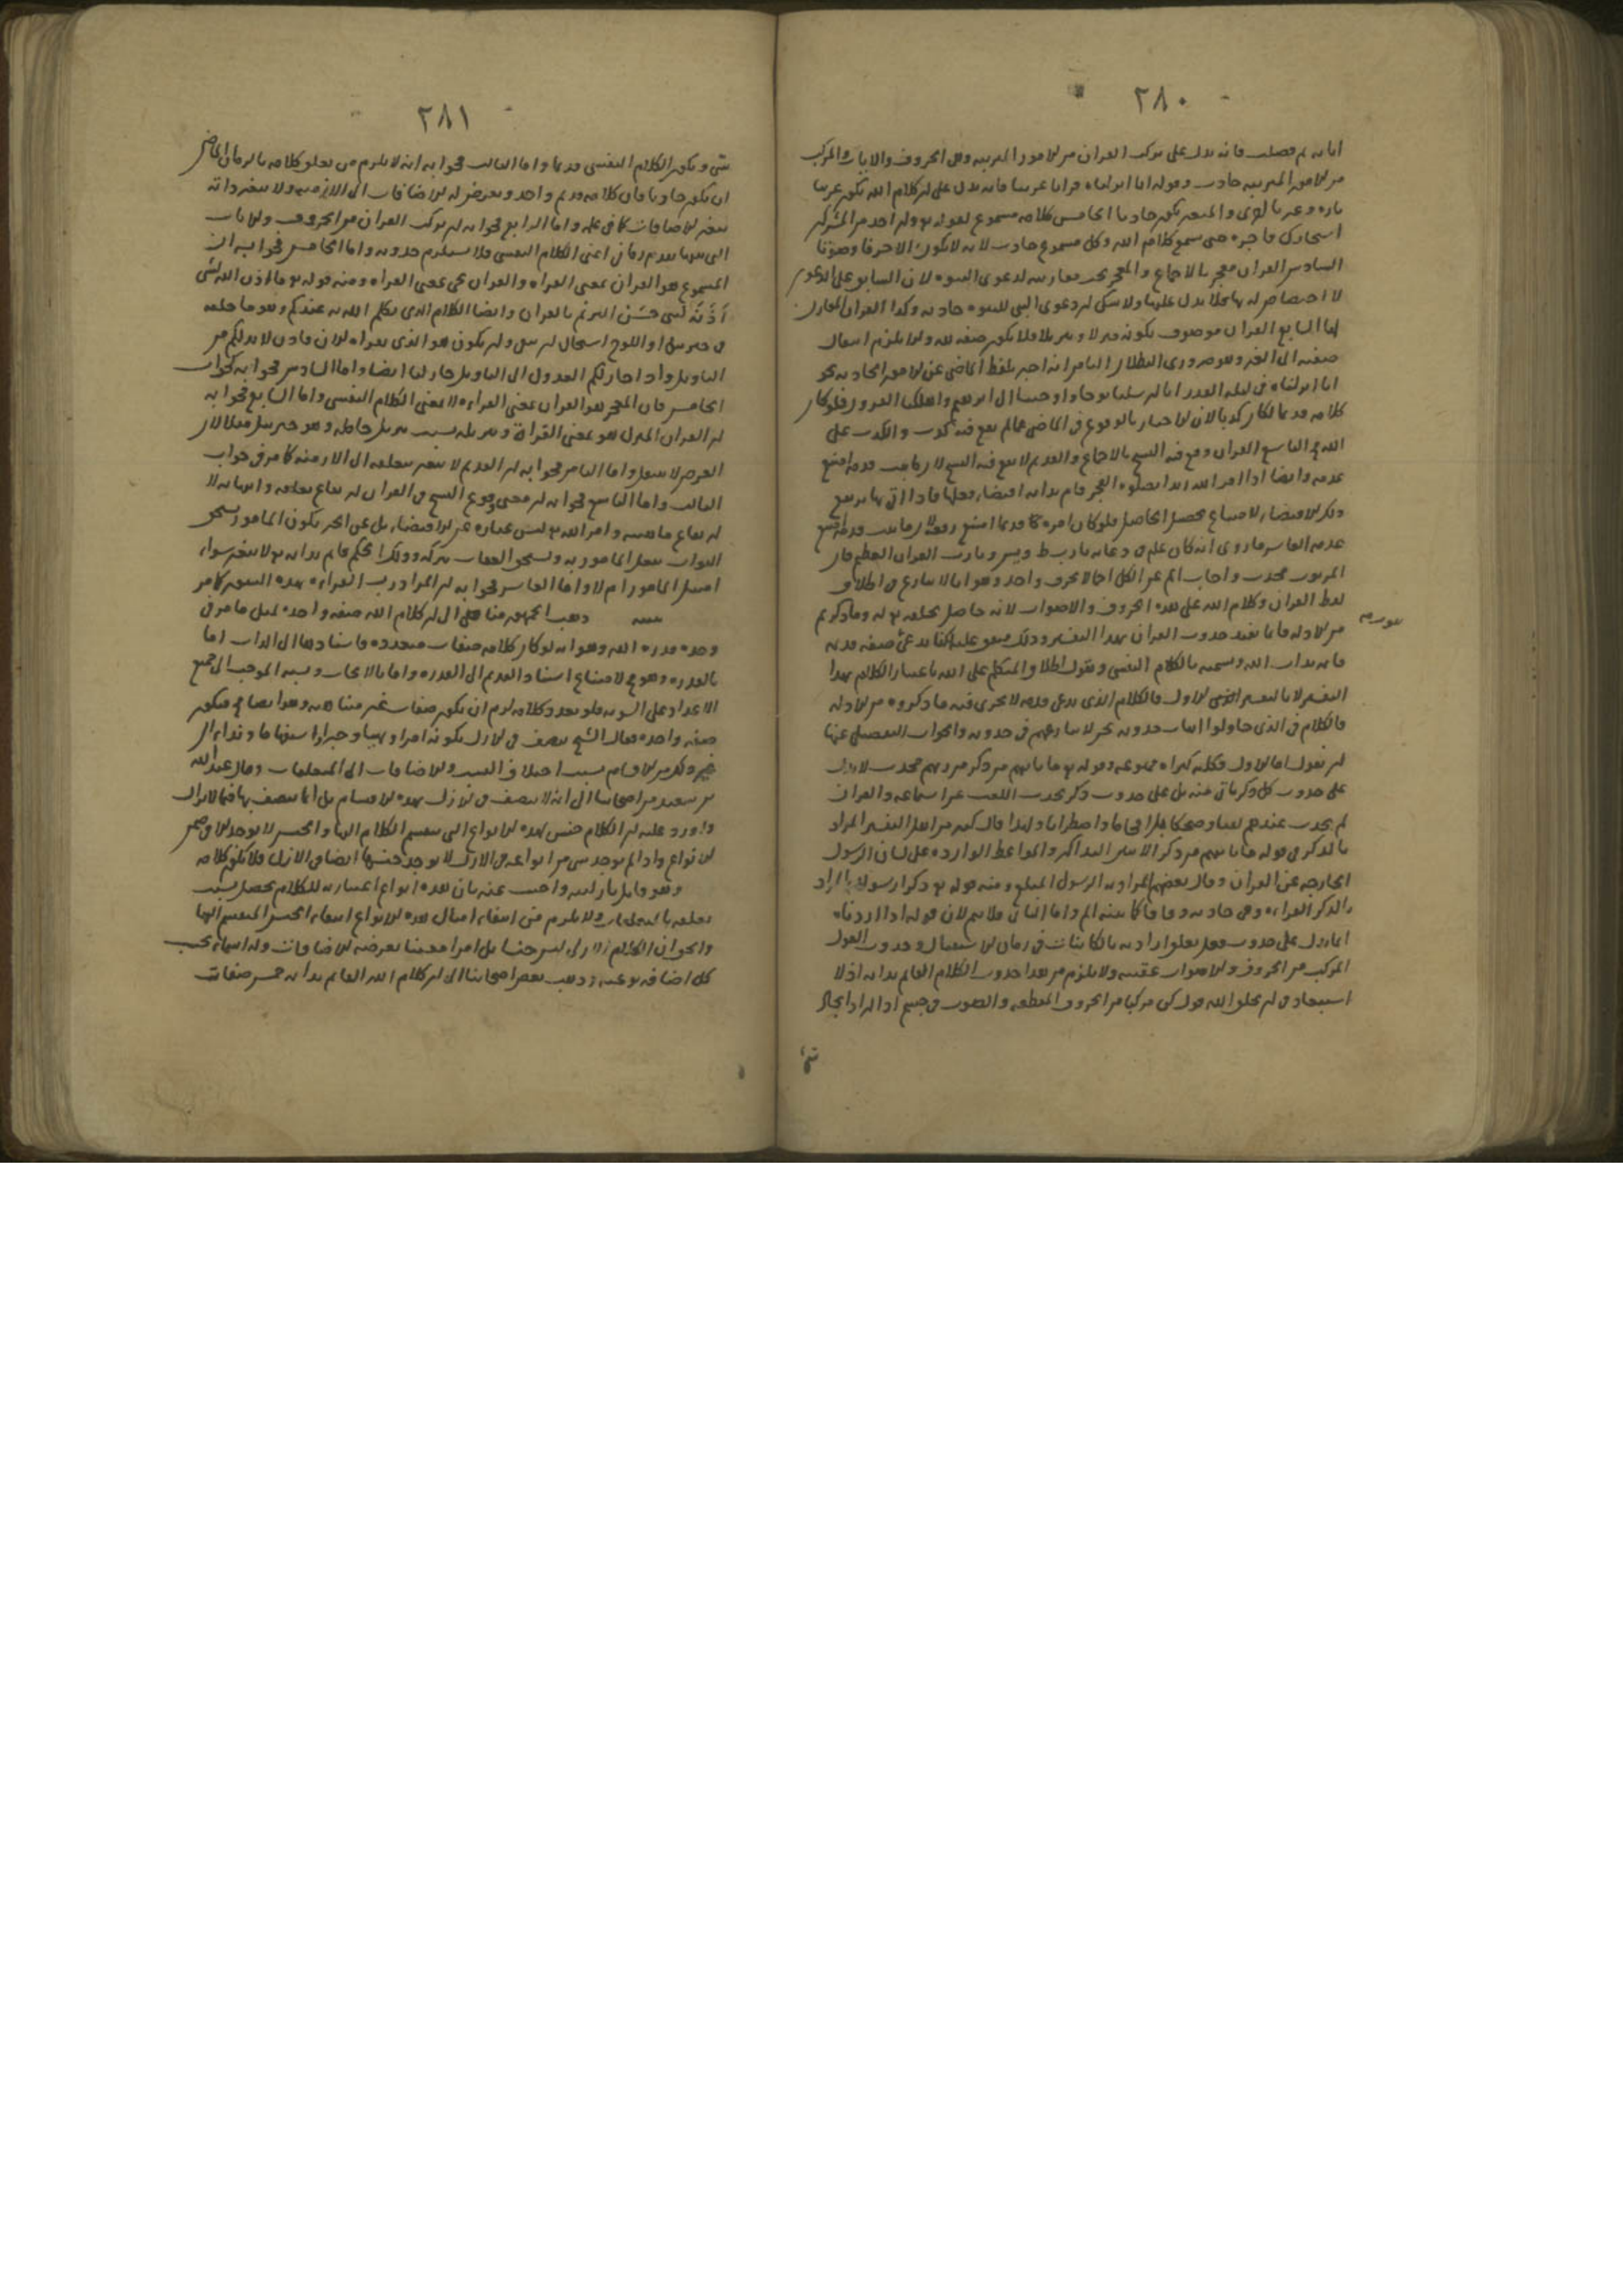 ٢٨٠
اياته ثم فصلت فانه يدل على تركب القران من الامور المترتبة وهي الحروف والايات والمركب
من الامور المترتبة حادث وقوله انا انزلناه قرانا عربيا فانه يدل على ان كلام الله يكون عربيا
تارة وعبريا اخرى والمتغير يكون حادثا الخامس كلامه مسموع لقوله تع وان احد من المشركين
استجارك فاجره حتى يسمع كلام الله وكل مسموع حادث لانه لا يكون الا حرفا وصوتا
السادس القران معجز بالاجماع والمعجز يجب مقارنته لدعوى النبوة لان السابق على الدعوى
لا اختصاص له بها فلا يدل عليها ولا شك ان دعوى النبي للنبوة حادثه وكذا القران المقارن
لها السابع القران موصوف بكونه منزلا وتنزيلا فلا يكون صفة لله والا يلزم انتقال
صفته الى الغير وهو ضروري البطلان الثامن انه اخبر بلفظ الماضي عن الامور الحادثه نحو
انا انزلناه في ليلة القدر انا ارسلنا نوحا واوحينا الى ابرهيم واهلكنا القرون فلو كان
كلامه قديما لكان كذبا لان الاخبار بالوقوع في الماضي عما لم يقع فيه كذب والكذب على
الله مح التاسع القران وقع فيه النسخ بالاجماع والقديم لا يقع فيه النسخ لان ما ثبت قدمه امتنع
عدمه وايضا اذا امر الله زيدا بصلوة الفجر قام بذاته اقتضاء فعلها فاذا اتى بها يرتفع
ذلك الاقتضاء لامتناع تحصيل الحاصل فلو كان امره تعا قديما امتنع رفعه لان ما ثبت قدمه امتنع
عدمه العاشر ما روى انه كان علم في دعائه يا رب طه ويس ويا رب القران العظيم فان
المربوب محدث واجاب المص عن الكل اجمالا بحرف واحد وهو انا لا ننازع في اطلاق
لفظ القران وكلام الله على هذه الحروف والاصوات لانه حاصل بخلقه تع له وما ذكرتم
من الادلة فانما يفيد حدوث القران بهذا التفسير وذلك متفق عليه انما ندعى صفة قديمة
قائمة بذات الله ونسميه بالكلام النفسي ونقول اطلاق المتكلم على الله باعتبار الكلام بهذا
التفسير لا بالتفسير الاول فالكلام الذي ندعى قدمه لا يجرى فيه ما ذكروه من الادلة
فالكلام في الذي حاولوا اثبات حدوثه نحن لا ننازعهم في حدوثه والجواب التفصيلي عنها
ان نقول اما الاول فكلية كبراه ممنوعة وقوله تع ما ياتيهم من ذكر من ربهم محدث لا يدل
على حدوث كل ذكر ياتي منه بل على حدوث ذكر يحدث اللعب عن استماعه والقران
لم يحدث عندهم لعبا وضحكا بل افحاما واضطرابا ولهذا قال كثير من اهل التفسير المراد
بالذكر في قوله ما ياتيهم من ذكر الايه التذاكير والمواعظ الوارده على لسان الرسول
الخارجه عن القران وقال بعضهم المراد به الرسول المبلغ ومنه قوله تع ذكرا رسولا والمراد
بالذكر القراءة وهي حادثه وفاقا كما سنه الم واما الثاني فلا نم لان قوله اذا اردناه
انما يدل على حدوث فعل يتعلق ارادته بالكائنات في زمان الاستقبال وحدوث القول
المركب من الحروف والاصوات عقيبه ولا يلزم من هذا حدوث الكلام القائم بذاته اذ لا
استبعاد في ان يخلق الله قول كن مركبا من الحروف المنقطعة والصوت في جسم اذا اراد ايجاد
شئ
٢٨١
شئ ويكون الكلام النفسي قديما واما الثالث فجوابه انه لا يلزم من تعلق كلامه بالزمان الماضي
ان يكون حادثا فان كلامه قديم واحد ويعرض له الاضافات الى الازمنه ولا يتغير ذاته
بتغير الاضافات كما في علمه واما الرابع فجوابه ان تركب القران من الحروف والايات
التي بينها تقدم زماني اعنى الكلام النفسي فلا يستلزم حدوثه واما الخامس فجوابه ان
المسموع هو القران بمعنى القراءة والقران يجئ بمعنى القراءة ومنه قوله تع ما اذن الله لشئ
اَذَنَه لنبى حسَن الترنم بالقران وايضا الكلام الذي يكلم الله به عندكم وهو ما خلقه
في جبرئيل او اللوح استحال ان يبقى وان يكون هو الذي نقراه الان فاذن لا بد لكم من
التاويل واذا جاز لكم العدول الى التاويل جاز لنا ايضا واما السادس فجوابه كجواب
الخامس فان المعجز هو القران بمعنى القراءة لا بمعنى الكلام النفسي واما السابع فجوابه
ان القران المنزل هو بمعنى القراة وتنزيله بسبب تنزيل حامله وهو جبرئيل مثلا لان
العرض لا ينتقل واما الثامن فجوابه ان القديم لا يتغير بتعلقه الى الازمنة كما مر في جواب
الثالث واما التاسع فجوابه ان معنى وقوع النسخ في القران ارتفاع تعلقه وانتهائه لا
ارتفاع ماهيته وامر الله تع ليس عبارة عن الاقتضاء بل عن الخبر بكون المامور يستحق
الثواب بفعل المامور به ويستحق العقاب بتركه وذلك الحكم قائم بذاته تع لا يتغير سواء
امتثل المامور ام لا واما العاشر فجوابه ان المراد رب القراءة بهذه التغير كما مر
تنبيه ذهب الجمهور منا هى الى ان كلام الله صفة واحدة لمثل ما مر في
وحدة قدرة الله وهو انه لو كان كلامه صفات متعدده فاستنادها الى الذات اما
بالقدرة وهو مح لامتناع استناد القديم الى القدرة واما بالايجاب ونسبة الموجب الى جميع
الاعداد على السويه فلو تعدد كلامه لزم ان يكون صفات غير متناهيه وهو ايضا مح فيكون
صفة واحدة فقال الشيخ يتصف في الازل بكونه امرا ونهيا وخبرا واستفهاما ونداء الى
غير ذلك من الاقسام بسبب اختلاف النسب والاضافات الى المتعلقات وقال عبد الله
بن سعيد من اصحابنا الى انه لا يتصف في الازل بهذه الاقسام بل انما يتصف بها فيما لا يزال
واورد عليه ان الكلام جنس بهذه الانواع التي ينقسم الكلام اليها والجنس لا يوجد الا في ضمن
الانواع واذا لم يوجد شئ من انواعه في الازل لا يوجد جنسها ايضا في الازل فلا يكون كلامه
وهو قائل بازليته واجيب عنه بان هذه انواع اعتباريه للكلام يحصل بسبب
تعلقه بالمتعلقات ولا يلزم من انتفاء امثال هذه الانواع انتفاء الجنس المنقسم اليها
والجواب ان الكلام الازلى ليس جنسا بل امرا معينا يعرضه الاضافات وله اسماء بحسب
كل اضافة نوعيه وذهب بعض اصحابنا الى ان كلام الله القائم بذاته خمس صفات